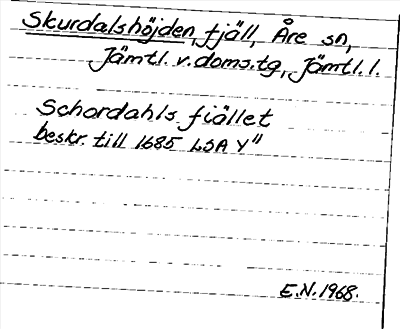 Skurdalshöjden, fjäll, Åre sn,
Jämtl. v. doms.tg, Jämtl. l.
Schordahls fiället
beskr. till 1685 LSA Y"
E.N. 1968.